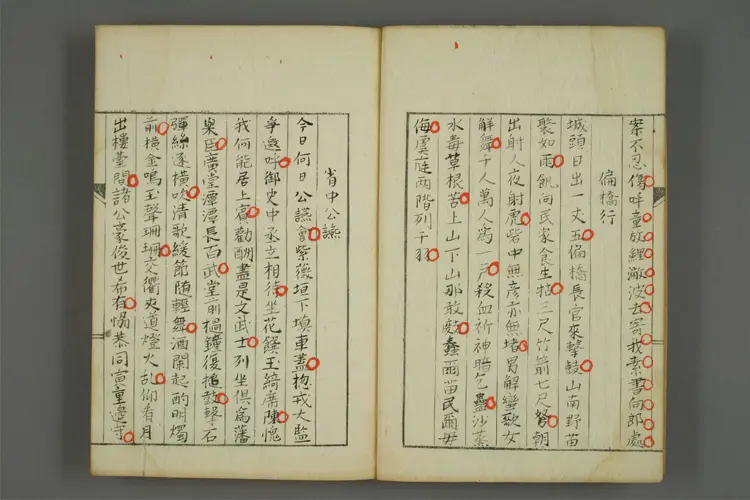 案不忍傷呼童放鯉澈波去寄我素書向郎處
偏橋行
城頭日出一丈五偏橋長官來擊鼓山南野苗
聚如雨飢向民家食生牯三尺竹箭七尺弩朝
出射人夜射虎砦中無房亦無堵男解蠻歌女
解舞千人萬人爲一戶殺血祈神暗乞蠱沙蒸
水毒草根苦上山下山那敢數蠢爾苗民爾毋
侮虞庭兩階列干羽
省中公讌
今日何日公讌會紫薇垣下填車蓋揔戎大監
爭邀呼御史中丞立相待坐花饌玉綺席陳愧
我何能居上賓勸酬盡是文武士列坐俱爲藩
臬臣廣臺潭潭長百武堂前撾鐘復搥鼓擊石
彈絲逐橫吹清歌緩節隨輕舞酒闌起酌明燭
前橫金鳴玉聲珊珊交衢夾道燈火亂仰看月
出樓臺間諸公豪俊世希有惕恭同寅重邊守